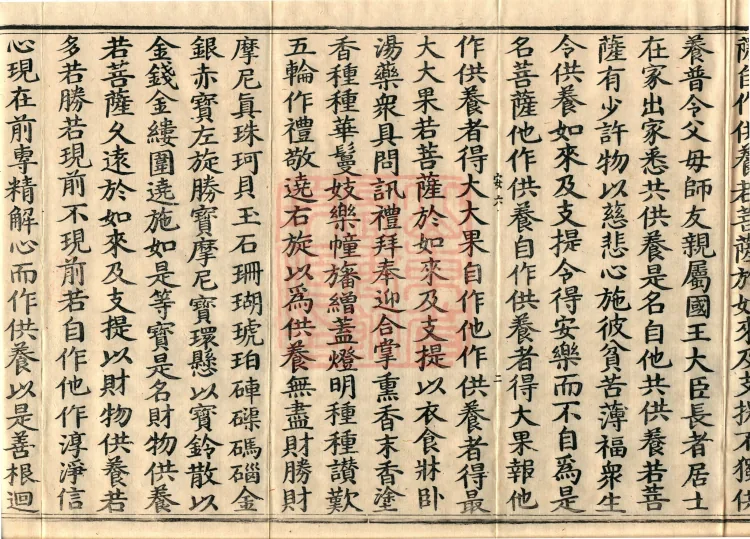 薩自作供養若菩薩於如來及支提不獨供
養普令父母師友親屬國王大臣長者居士
在家出家悉共供養是名自他共供養若菩
薩有少許物以慈悲心施彼貧苦薄福衆生
令供養如來及支提令得安樂而不自爲是
名菩薩他作供養自作供養者得大果報他
安六 二
作供養者得大大果自作他作供養者得最
大大果若菩薩於如來及支提以衣食牀卧
湯藥衆具問訊禮拜奉迎合掌熏香末香塗
香種種華鬘妓樂幢旛繒蓋燈明種種讃歎
五輪作禮敬遶右旋以爲供養無盡財勝財
摩尼真珠珂貝玉石珊瑚琥珀硨磲碼碯金
銀赤寶左旋勝寶摩尼寶環懸以寶鈴散以
金錢金縷圍遶施如是等寶是名財物供養
若菩薩久遠於如來及支提以財物供養若
多若勝若現前不現前若自作他作淳淨信
心現在前專精解心而作供養以是善根迴